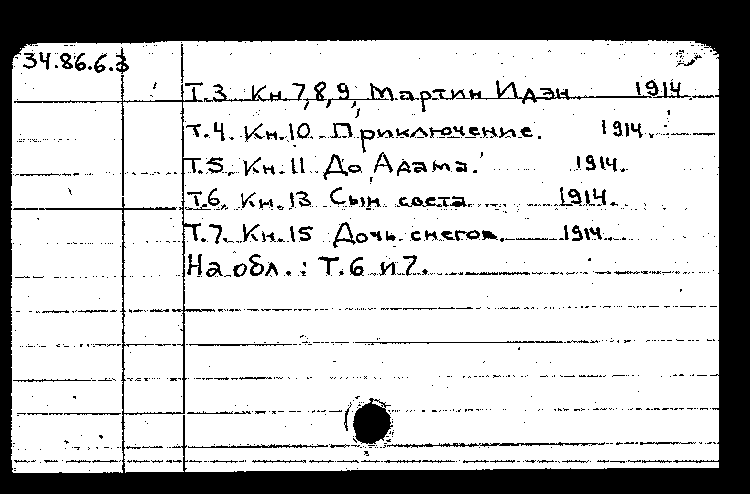 34.86.6.3
Т.3. Кн.7,8,9, Мартин Идэн 1914
Т.4. Кн.10. Приключение. 1914.
Т.5. Кн.11 До Адама. 1914.
Т.6. Кн.13 Сын света 1914.
Т.7. Кн.15 Дочь снегов. 1914.
На обл.: Т.6 и 7.